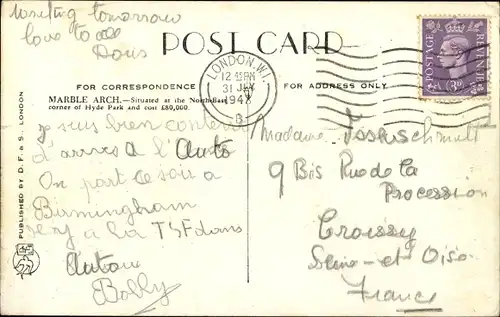 tomorrow
love to all
Doris
POST CARD
LONDON.W.1.
12 15 PM
31 JLY
1947
B
POSTAGE REVENUE
3D
FOR CORRESPONDENCE
FOR ADDRESS ONLY
MARBLE ARCH.—Situated at the North-East
corner of Hyde Park and cost £80,000.
PUBLISHED BY D. F. & S. LONDON
je suis bien content
d'arrivé a l'Auto
On part ce soir a
Birmingham
il y a la TSF dans
l'Auto
Bobby
Madame
9 Bis Rue de la
Procession
Croissy
Seine-et Oise
France